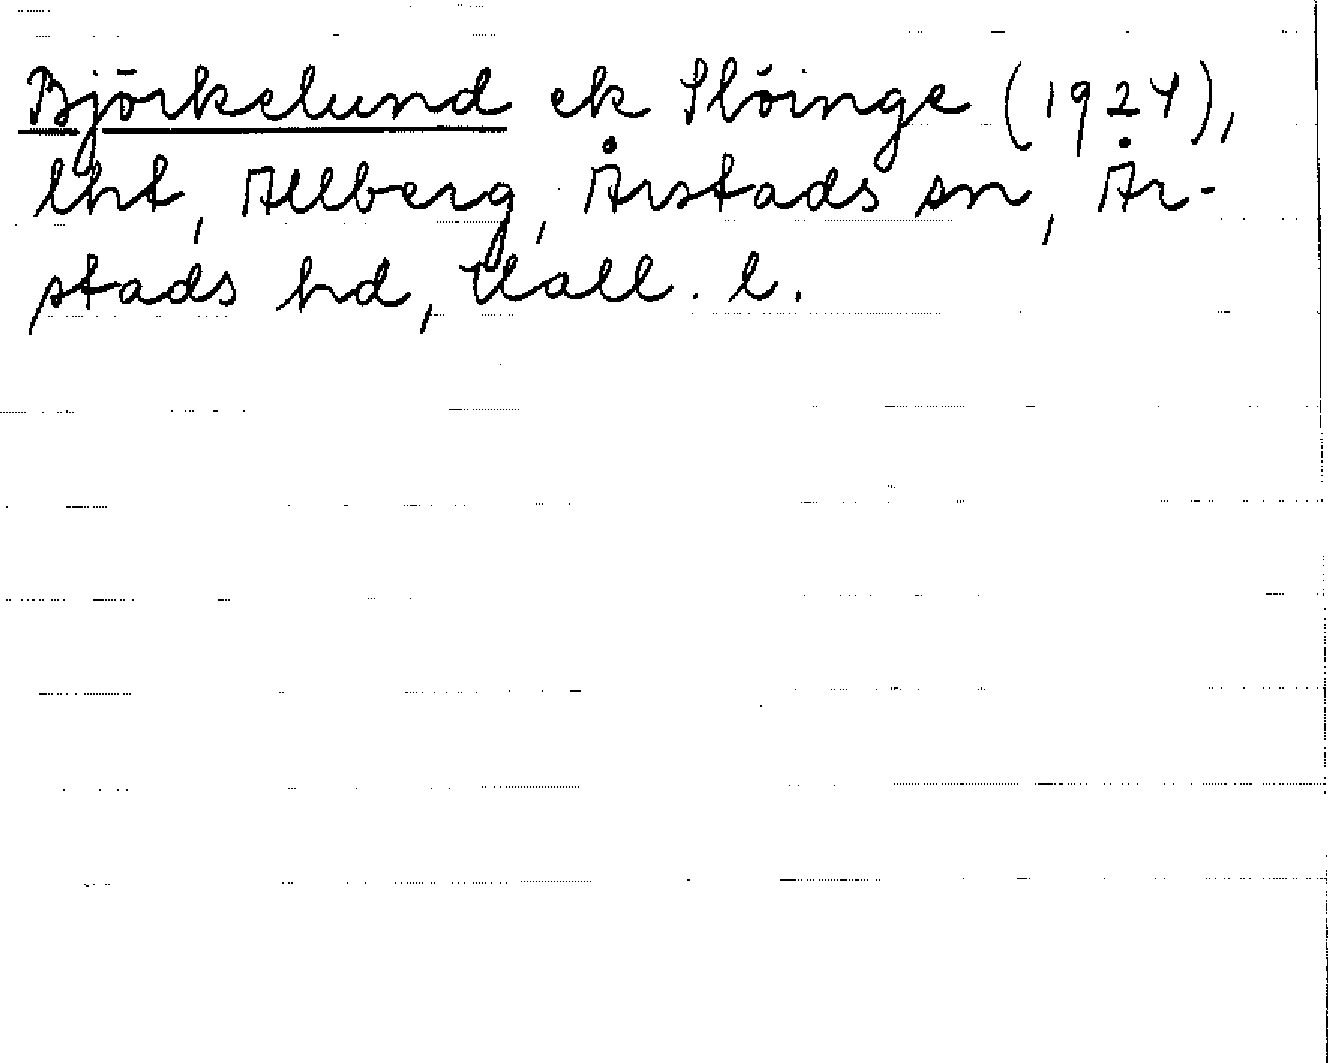 Björkelund ek Slöinge (1924),
lht, Allberg, Årstads sn, År-
stads hd, Hall. l.